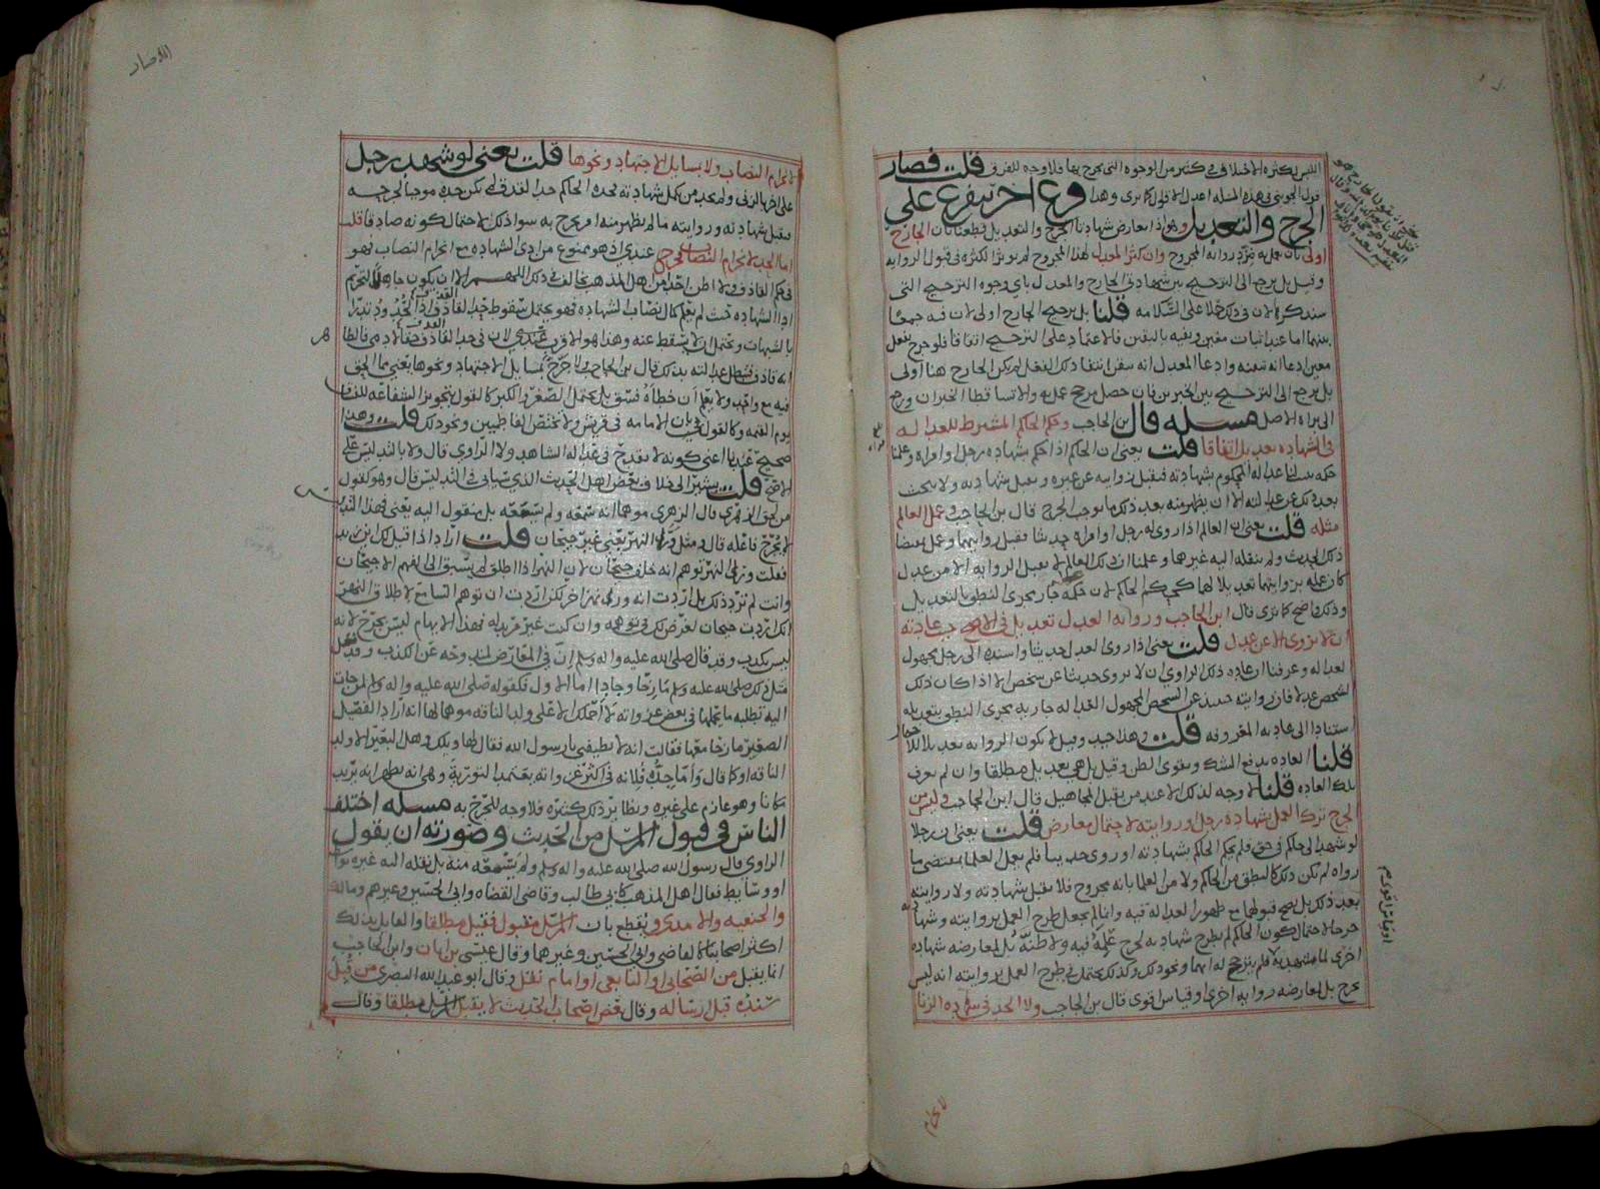 اللبس لكثرة الاختلاف في كثير من الوجوه التي يجرح بها فلا وجه للفرق قلت فصار
قول الجويني في هذه المسئله اعدل الاقوال كما ترى وهذا فرع اخر يتفرع على
الجرح والتعديل وهو اذا تعارض شهادتا الجرح والتعديل قطعنا بان الجارح
اولى بان يعمل به فترد روايه المجروح وان كثر المعدل لهذا المجروح لم تؤثر الكثره في قبول الروايه
وقيل بل يرجع الى الترجيح بين شهادتي الجارح والمعدل باي وجوه الترجيح التي
سنذكره لان في ذلك حملا على السلامه قلنا بل ترجيح الجارح اولى لان فيه جمعا
بينهما اما عند اثبات معين ونفيه باليقين فالاعتماد على الترجيح اتفاقا فلو جرح بفعل
معين ادعا انه تيقنه وادعا المعدل انه تيقن انتفا ذلك الفعل لم يكن الجارح هنا اولى
بل يرجع الى الترجيح بين الخبرين فان حصل مرجح عمل به والا تساقطا الخبران ورجع
الى براه الاصل مسله قال بن الحاجب وحكم الحاكم المشترط للعداله
في الشهاده تعديل اتفاقا قلت يعني ان الحاكم اذا حكم بشهاده رجل او امراه وعلمنا
حكمه بعدالة المحكوم بشهادته فتقبل روايته عن غيره وتقبل شهادته ولا يبحث
بعد ذلك عن عدالته الا ان يظهر منه بعد ذلك ما يوجب الجرح قال بن الحاجب وعمل العالم
مثله قلت يعني ان العالم اذا روى له رجل او امراه حديثا فقبل روايتهما وعمل بمقتضا
ذلك الحديث ولم ينقله اليه غيرهما وعلمنا ان ذلك العالم لا يقبل الروايه الا من عدل
كان عمله بروايتهما تعديلا لهما كحكم الحاكم لان حكمه جار مجرى النطق بالتعديل
وذلك واضح كما ترى قال ابن الحاجب وروايه العدل تعديل في الاصح حيث عادته
ان لا يروى الا عن عدل قلت يعني اذا روى العدل حديثا واسنده الى رجل مجهول
العداله وعرفنا ان عاده ذلك الراوي ان لا يروى حديثا عن شخص الا اذا كان ذلك
الشخص عدلا فان روايته حينئذ عن الشخص المجهول العداله جاريه مجرى النطق بتعديله
استنادا الى عادته المعروفه قلت وهذا جيد وقيل لا تكون الروايه تعديلا
قلنا العاده تدفع الشك وتقوي الظن وقيل بل هي تعديل مطلقا وان لم يعرف
بتلك العاده قلنا لا وجه لذلك الا عند من يقبل المجاهيل قال ابن الحاجب وليس من
الجرح ترك العمل بشهادة رجل او روايته لاحتمال معارض قلت يعني ان رجلا
لو شهد الى حاكم في حق فلم يحكم الحاكم بشهادته او روى حديثا فلم يعمل العلما بمقتضى ما
رواه لم يكن ذلك كالنطق من الحاكم ولا من العلما بانه مجروح فلا تقبل شهادته ولا روايته
بعد ذلك بل يصح قبولهما مع ظهور العداله فيه وانما لم يجعل طرح العمل بروايته وشهادته
جرحا لاحتمال كون الحاكم لم يطرح شهادته لجرح علمه فيه ولا ظنه بل لمعارضه شهاده
اخرى لما شهد به فلم يترجح له ايهما ونحو ذلك وكذلك يحتمل في طرح العمل بروايته انه ليس
بجرح بل لمعارضه روايه اخرى او قياس اقوى قال بن الحاجب ولا الحد في شهاده الزنا
الانصار
لانخرام النصاب ولا بمسايل الاجتهاد ونحوها قلت يعني لو شهد رجل
على اخر بالزنى ولم يجد من يكمل شهادته فحده الحاكم حد القذف لم يكن حده موجبا لجرحه
فتقبل شهادته وروايته ما لم يظهر منه امر يجرح به سوا ذلك لاحتمال كونه صادقا قلت
اما الحد لانخرام النصاب فجرح عندي اذ هو ممنوع من ادى الشهاده مع انخرام النصاب فهو
في حكم القاذف ولا اظن احدا من اهل المذهب يخالف في ذلك اللهم الا ان يكون جاهلا لتحريم
ادا الشهاده حيث لم يعلم كمال نصاب الشهاده فهو يحتمل سقوط حد القاذف اذ الحدود تدرا
بالشبهات ويحتمل ان لا يسقط عنه وهذا هو الاقرب عندي لان في حد القاذف حقا لادمي فالظا
انه قاذف فتبطل عدالته بذلك قال بن الحاجب ولا جرح بمسايل الاجتهاد ونحوها يعني مما الحق
فيه مع واحد ولا يعلم ان خطاه فسق بل يحتمل الصغر والكبر كالقول بتجويز الشفاعه للفساق
يوم القيمه وكالقول بان الامامه في قريش ولا تختص الفاطميين ونحو ذلك قلت وهذا
صحيح عندنا اعني كونه لا يقدح في عدالة الشاهد ولا الراوي قال ولا بالتدليس على
الاصح قلت يشير الى خلاف بعض اهل الحديث الذي سياتي في التدليس قال وهو كقول
من لحق الزهري قال الزهري موهما انه سمعه ولم يسمعه بل منقول اليه يعني فهذا التدليس
لا يجرح فاعله قال ومثل ورا النهر يعني غير جيحان قلت اراد اذا قيل لك اين زيد
فقلت ورا النهر توهم انه خلف جيحان لان النهر اذا اطلق لم يسبق الى الفهم الا جيحان
وانت لم ترد ذلك بل اردت انه ورا نهر اخر لكن اردت ان توهم السامع لاطلاق النهر
انك اردت جيحان لغرض لك في توهمه وان كنت غير مريد له فهذا الايهام ليس بجرح لانه
ليس بكذب وقد قال صلى الله عليه واله وسلم ان في المعاريض لمندوحه عن الكذب وقد فعل
مثل ذلك صلى الله عليه وسلم مازحا وجادا اما الاول فكقوله صلى الله عليه واله وسلم لمن جات
اليه تطلبه ما يحملها في بعض غزواته لا احملك الا على ولد الناقه موهما لها انه اراد الفصيل
الصغير مازحا معها فقالت انه لا يطيقني يا رسول الله فقال لها ويلك وهل البعير الا ولد
الناقه او كما قال واما جده فلانه في اكثر غزواته يعتمد التوريه وهي انه يظهر انه يريد
مكانا وهو عازم على غيره ونظاير ذلك كثيره فلا وجه للجرح به مسله اختلف
الناس في قبول المرسل من الحديث وصورته ان يقول
الراوي قال رسول الله صلى الله عليه واله وسلم ولم يسمعه منه بل نقله اليه غيره بواسطه
او وسايط فقال اهل المذهب كابي طالب وقاضي القضاه وابي الحسين وغيرهم ومالك
والحنفيه والامدي ونقطع بان المرسل مقبول فقيل مطلقا والقايل بذلك
اكثر اصحابنا كالقاضي وابي الحسين وغيرهما وقال عيسى بن ابان وابن الحاجب
انما يقبل من الصحابي او التابعي او امام نقل وقال ابو عبد الله البصري من قبل
مسنده قبل ارساله وقال بعض اصحاب الحديث لا يقبل المرسل مطلقا وقال